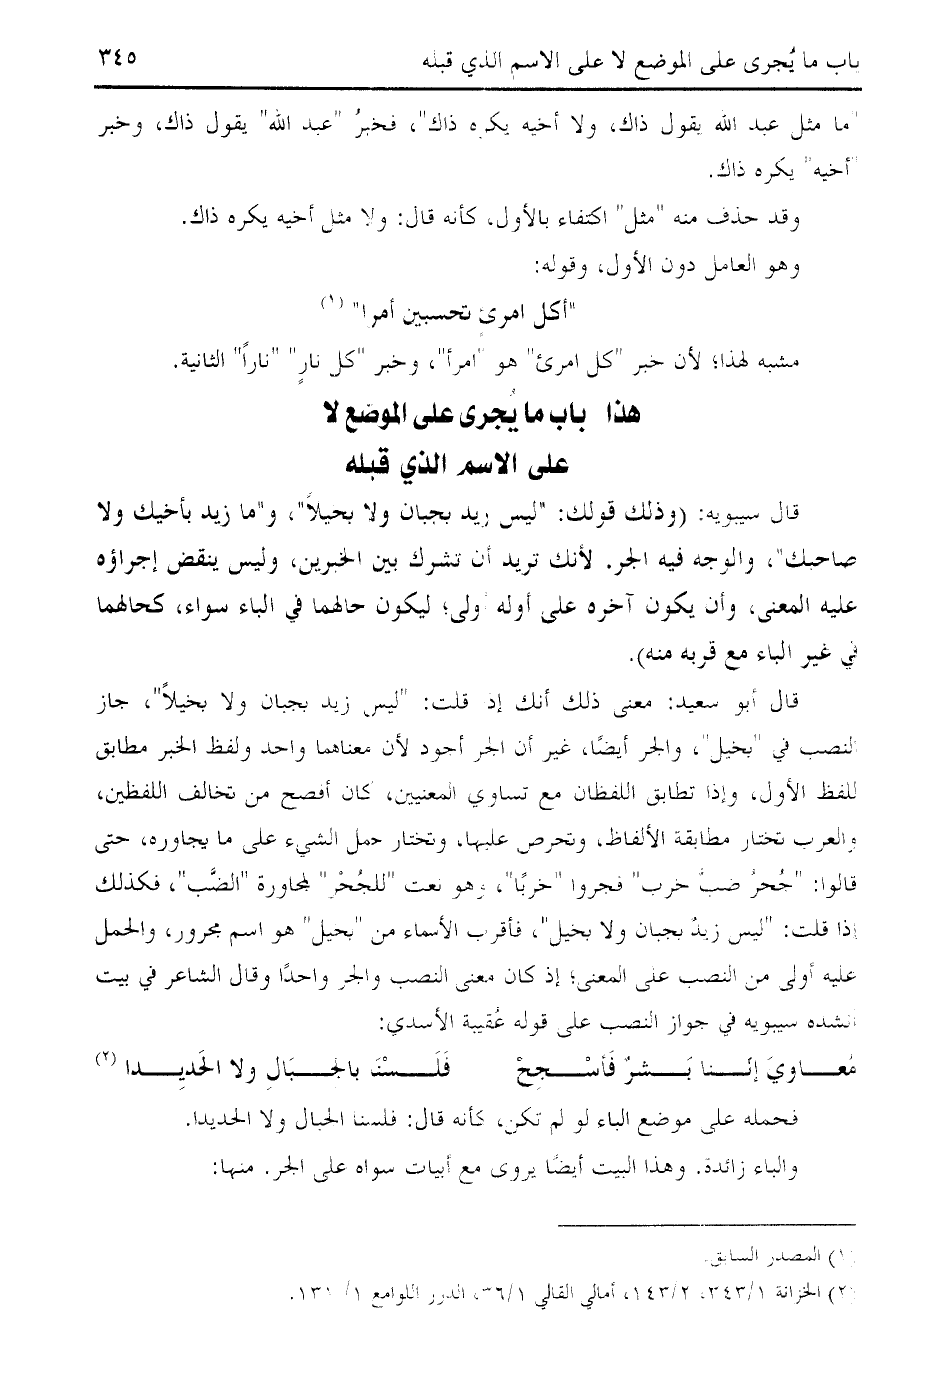 باب ما يُجرى على الموضع لا على الاسم الذي قبله ٣٤٥
"ما مثل عبد الله يقول ذاك، ولا أخيه يكره ذاك"، فخبرُ "عبد الله" يقول ذاك، وخبر
"أخيه" يكره ذاك.
وقد حذف منه "مثل" اكتفاء بالأول، كأنه قال: ولا مثل أخيه يكره ذاك.
وهو العامل دون الأول، وقوله:
"أكل امرئٍ تحسبين أمرا" (١)
مشبه لهذا؛ لأن خبر "كل امرئ" هو "امرأ"، وخبر "كل نارٍ" "ناراً" الثانية.
هذا باب ما يُجرى على الموضع لا
على الاسم الذي قبله
قال سيبويه: (وذلك قولك: "ليس زيد بجبان ولا بخيلاً"، و"ما زيد بأخيك ولا
صاحبك"، والوجه فيه الجر. لأنك تريد أن تشرك بين الخبرين، وليس ينقض إجراؤه
عليه المعنى، وأن يكون آخره على أوله أولى؛ ليكون حالهما في الباء سواء، كحالهما
في غير الباء مع قربه منه).
قال أبو سعيد: معنى ذلك أنك إذ قلت: "ليس زيد بجبان ولا بخيلاً"، جاز
النصب في "بخيل"، والجر أيضًا، غير أن الجر أجود لأن معناهما واحد ولفظ الخبر مطابق
للفظ الأول، وإذا تطابق اللفظان مع تساوي المعنيين، كان أفصح من تخالف اللفظين،
والعرب تختار مطابقة الألفاظ، وتحرص عليها، وتختار حمل الشيء على ما يجاوره، حتى
قالوا: "جُحرُ ضبٍّ خرب" فجروا "خربًا"، وهو نعت "للجُحْر" لمجاورة "الضَّب"، فكذلك
إذا قلت: "ليس زيدٌ بجبان ولا بخيل"، فأقرب الأسماء من "بخيل" هو اسم مجرور، والحمل
عليه أولى من النصب على المعنى؛ إذ كان معنى النصب والجر واحدًا وقال الشاعر في بيت
أنشده سيبويه في جواز النصب على قوله عُقيبة الأسدي:
مُعـــاويَ إنَّـــنا بَـــشرٌ فَأسْـــجِحْ فَلَـــسْنَا بالجـــبَالِ ولا الحَديـــدا (٢)
فحمله على موضع الباء لو لم تكن، كأنه قال: فلسنا الجبال ولا الحديدا.
والباء زائدة. وهذا البيت أيضًا يروى مع أبيات سواه على الجر. منها:
(١) المصدر السابق.
(٢) الخزانة ٣٤٣/١، ١٤٣/٢، أمالي القالي ٣٦/١، الدرر اللوامع ١/ ١٣٠.